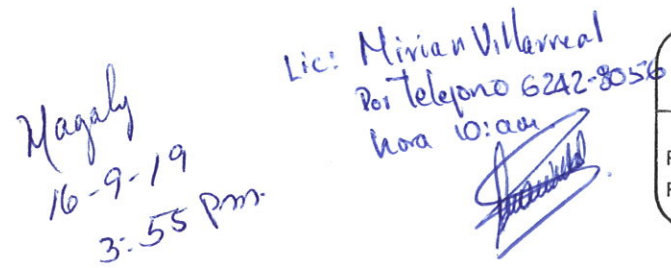 Magaly
16-9-19
3:55 pm.
Lic: Mirian Villarreal
Por Telefono 6242-8056
hora 10: am.